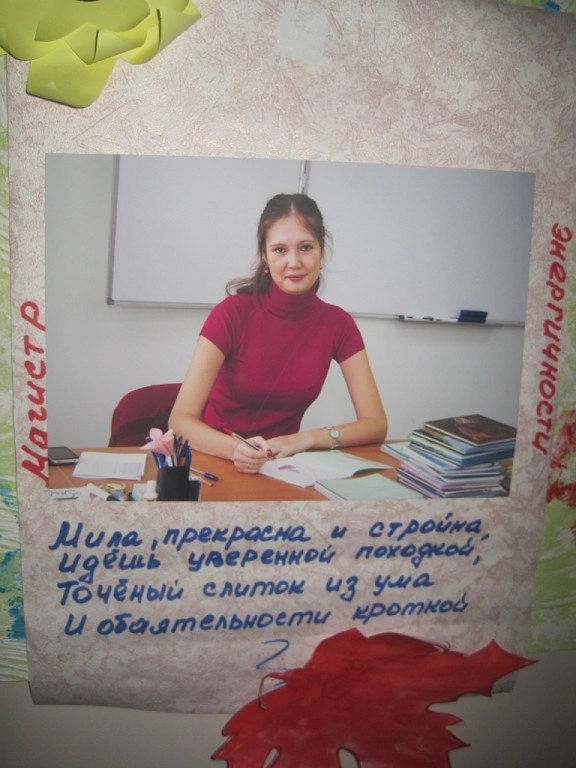 Магистр
энергичности
Мила, прекрасна и стройна,
идёшь уверенной походкой,
Точёный слиток из ума
И обаятельности кроткой